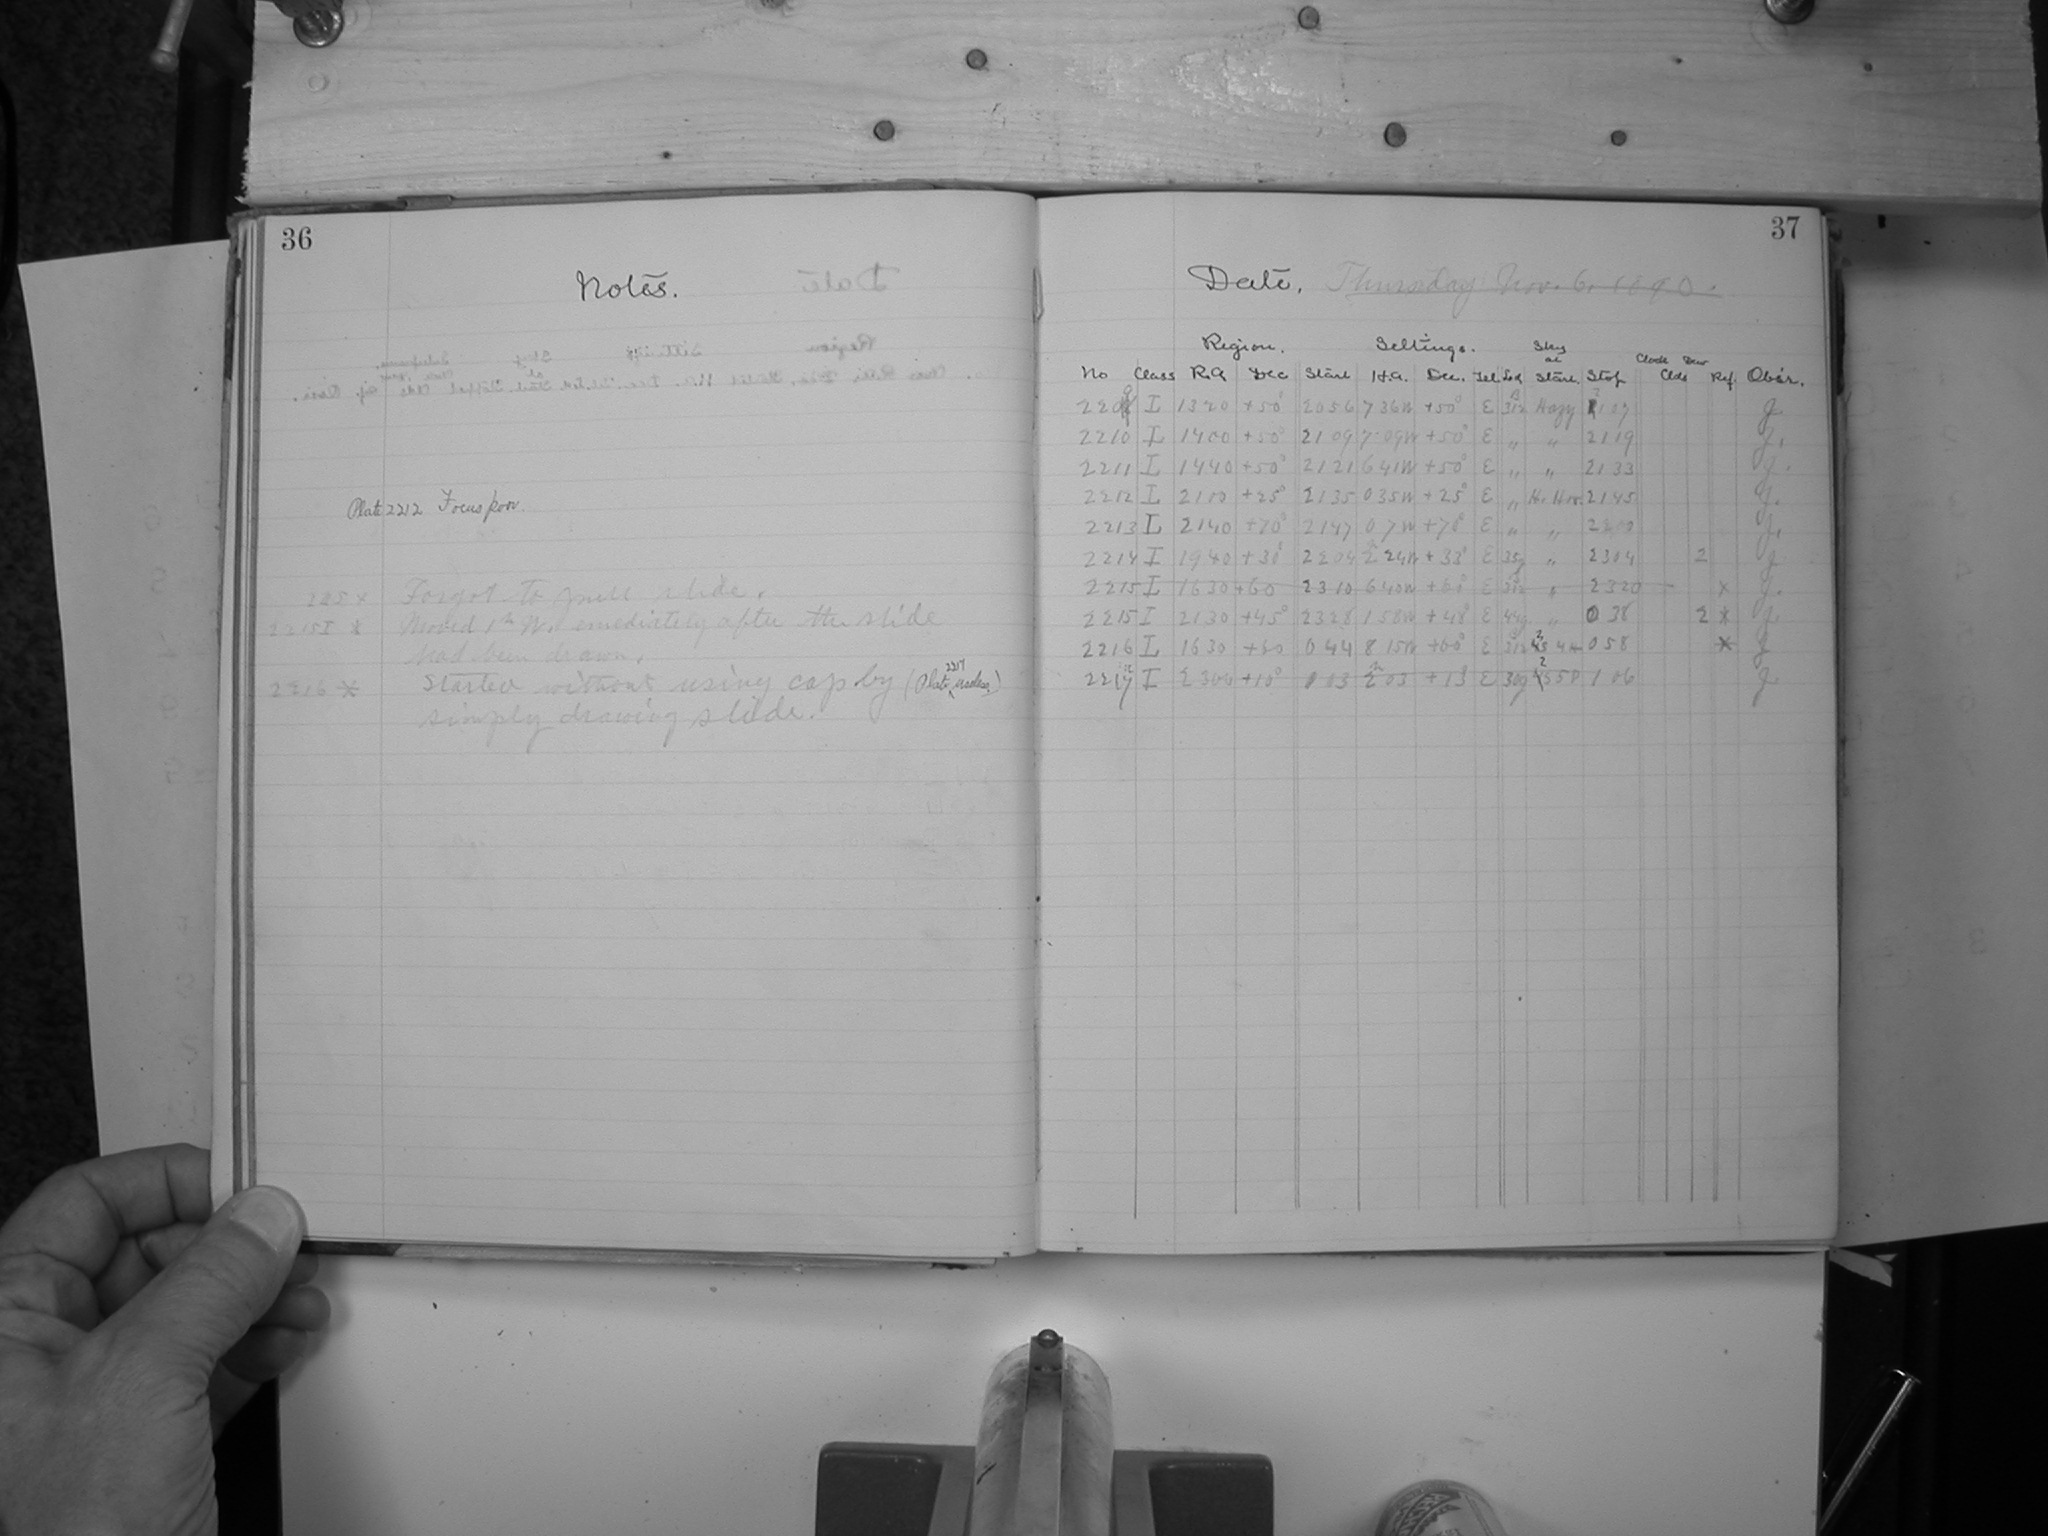 36
Notes.
Plate 2212 Focus poor.
225 x Forgot to pull slide.
2215I * Moved 1m W. immediately after the slide
had been drawn.
2216 * Started without using cap by (Plate 2217 useless)
simply drawing slide.
37
Date. Thursday Nov. 6. 1890.
Region. Settings. Sky at
No Class R.A Dec Start H.A. Dec. Tel Start Stop Clock Dew Clds Ref. Obsr.
I 1320 +50° 2056 7 36W +50° E 31g Hazy g
2210 I 1400 +50° 2109 7 09W +50° E " " 2119 g.
2211 I 1440 +50° 2121 6 41W +50° E " " 2133 g.
2212 I 2100 +25° 2135 0 35W +25° E " 2145 g.
2213 I 2140 +70° 2147 0 7W +70° E " " g.
2214 I 1940 +30° 2204 2 24W + 33° E " 2304 2 g
2215 I 1630 +60 2310 6 40W +60° E " 2320 x g.
2215 I 2130 +45° 2328 1 58W +48° E " 0 38 2 * g.
2216 I 1630 +60 0 44 8 15W +60° E 0 58 * g
I +10° 0 03 2 03 + 13° E 1 06 g.